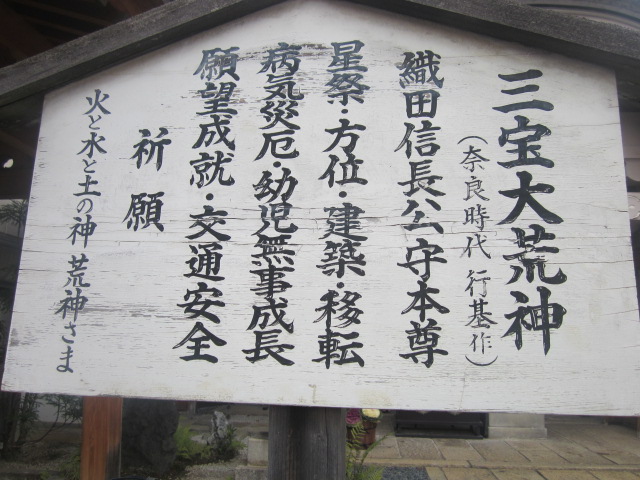 三宝大荒神
(奈良時代 行基作)
織田信長公守本尊
星祭・方位・建築・移転
病気災厄・幼児無事成長
願望成就・交通安全
祈願
火と水と土の神 荒神さま